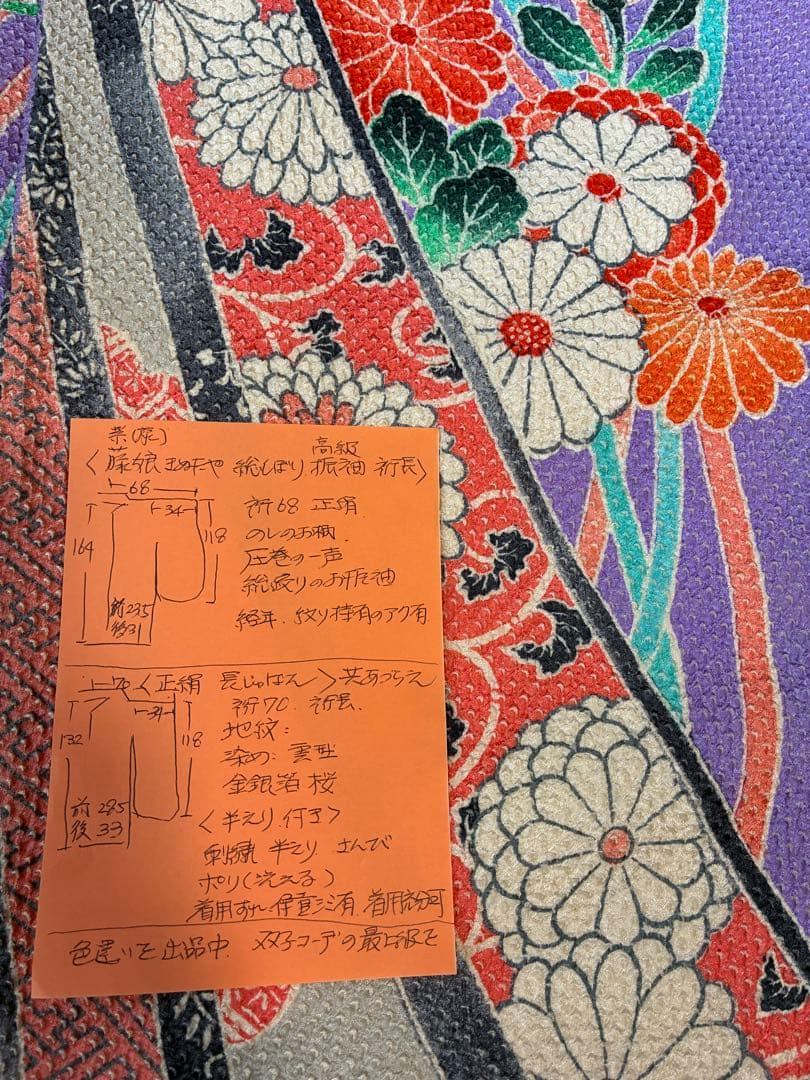 高級
〈藤娘きぬたや 総しぼり 振袖 裄長〉
68
34
164
118
前23.5
後31
裄68 正絹
のしのお柄
圧巻の一声
総絞りのお振袖
経年、絞り特有のアク有
〈正絹 長じゅばん〉共あつらえ
70
34
132
118
前28.5
後33
裄70 裄長
地紋：
染め: 雲型
金銀箔 桜
〈半えり 付き〉
刺繍 半えり さんび
ポリ(洗える)
着用すれ 保管シミ有 着用充分可
色違いを出品中 双子コーデの最上級を